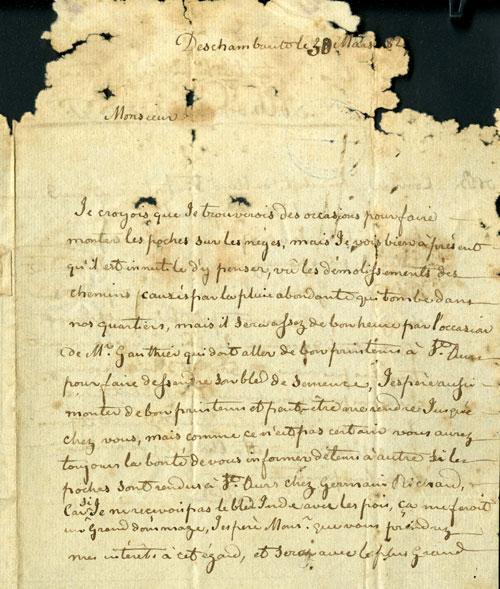 Deschambault le 30 Mars 182
Monsieur
Je croyois que Je trouverois des occasions pour faire
monter les poches sur les neges, mais Je vois bien à présent
qu'il est innutile d'y penser, vû les démolissements des
chemins causés par la pluie abondante qui tombe dans
nos quartiers, mais il sera assez de bonheure par l'occasion
de Mr. Gauthier qui doit aller de bon printems à St. Ours
pour faire dessendre son bled de semence, J'espère aussi
monter de bon printems et peut-être me rendre Jusque
chez vous, mais comme ce n'est pas certain vous aurez
toujours la bonté de vous informer de tems à autre si les
poches sont rendus à St. Ours chez Germain
Car si Je ne recevois pas le bled Inde avec les pois, ça me feroit
un Grand dommage, J'espère Mons. que vous prendrez
mes intérêts à cet egard, et serez avec le plus grand